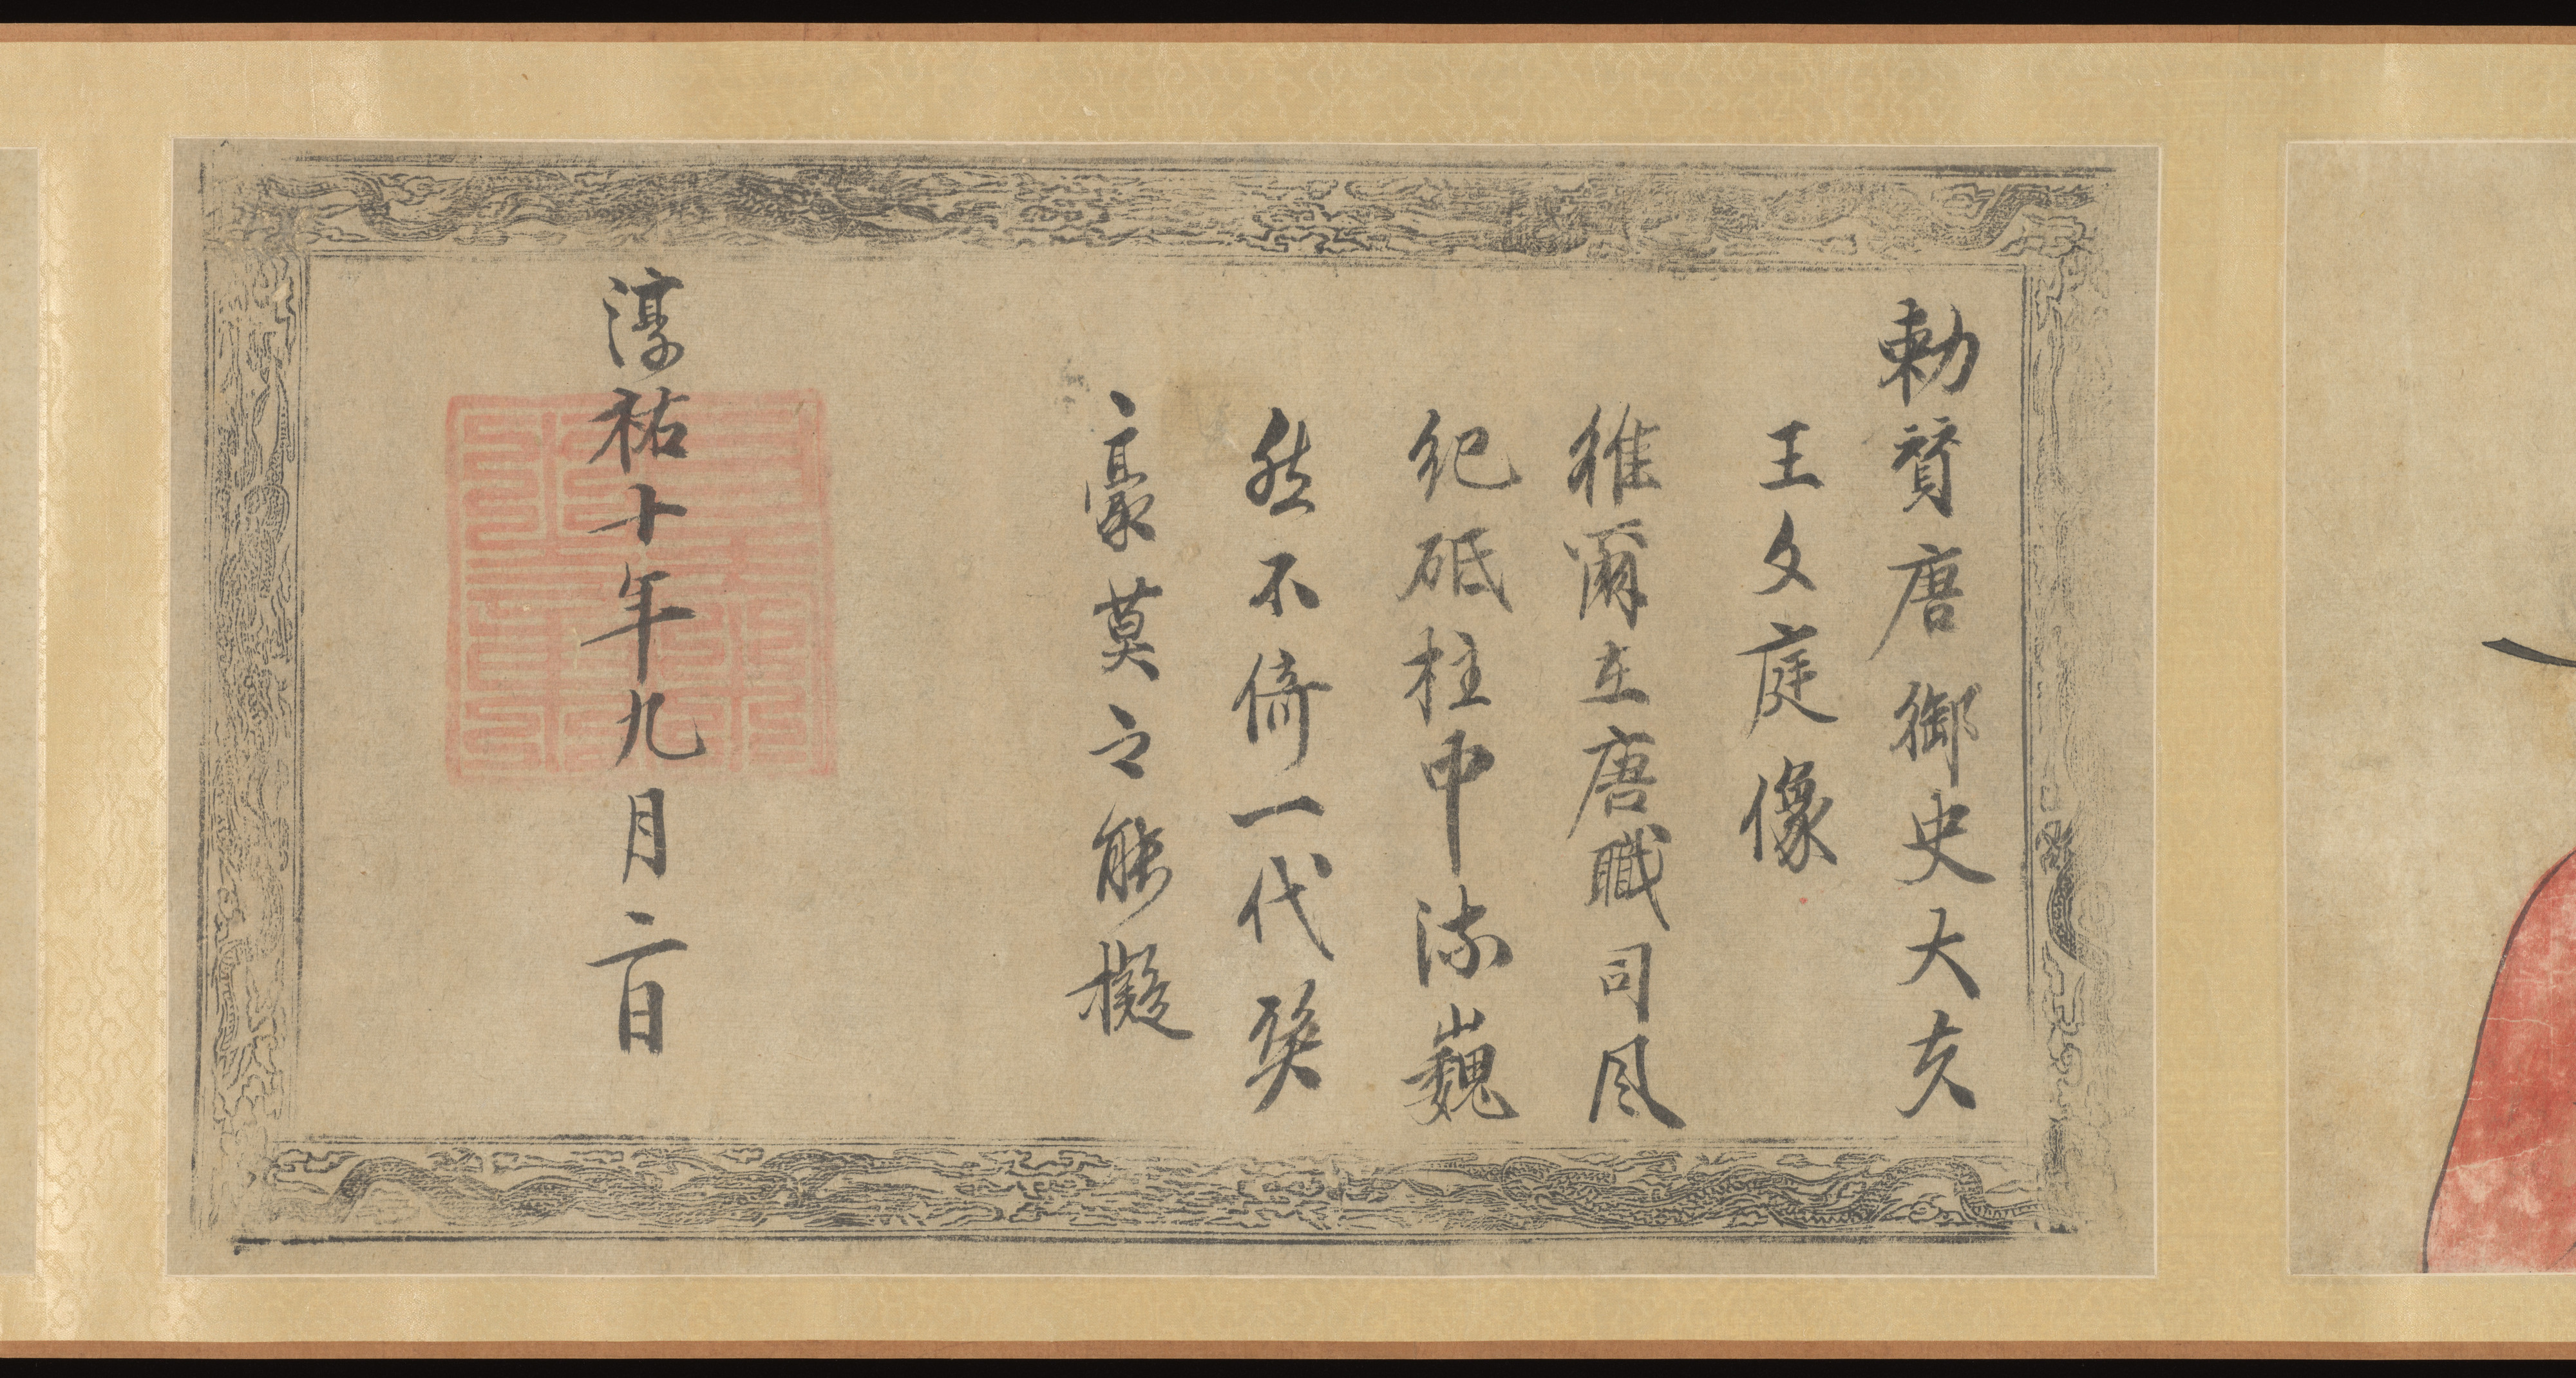 勅賛唐御史大夫
王文庭像
維爾在唐職司風
紀砥柱中流巍
然不倚一代英
豪莫之能擬
淳祐十年九月二日